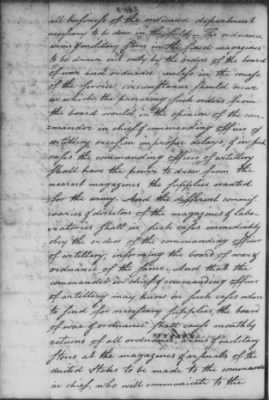 all business of the ordnance department
necessary to be done in the field – The ordnance
arms & military stores in the fixed magazines
to be drawn out only by the orders of the board
of war and ordnance: unless in the course
of the service, circumstances should occur
in which the procuring such orders from
the board would, in the opinion of the com-
mander in chief, or commanding officer of
artillery occasion improper delays, & in such
cases the commanding officer of artillery
shall have the power to draw from the
nearest magazines the supplies wanted
for the army. And the different commis-
saries & directors of the magazines & labo-
ratories shall in such cases immediately
obey the orders of the commanding officer
of artillery, informing the board of war &
ordnance of the same. And that the
commander in chief & commanding officer
of artillery may know in such cases where
to send for necessary supplies, the board
of war & ordnance shall cause monthly
returns of all ordnance, arms & military
stores at the magazines & arsenals of the
United States to be made to the commander
in chief, who will communicate to the